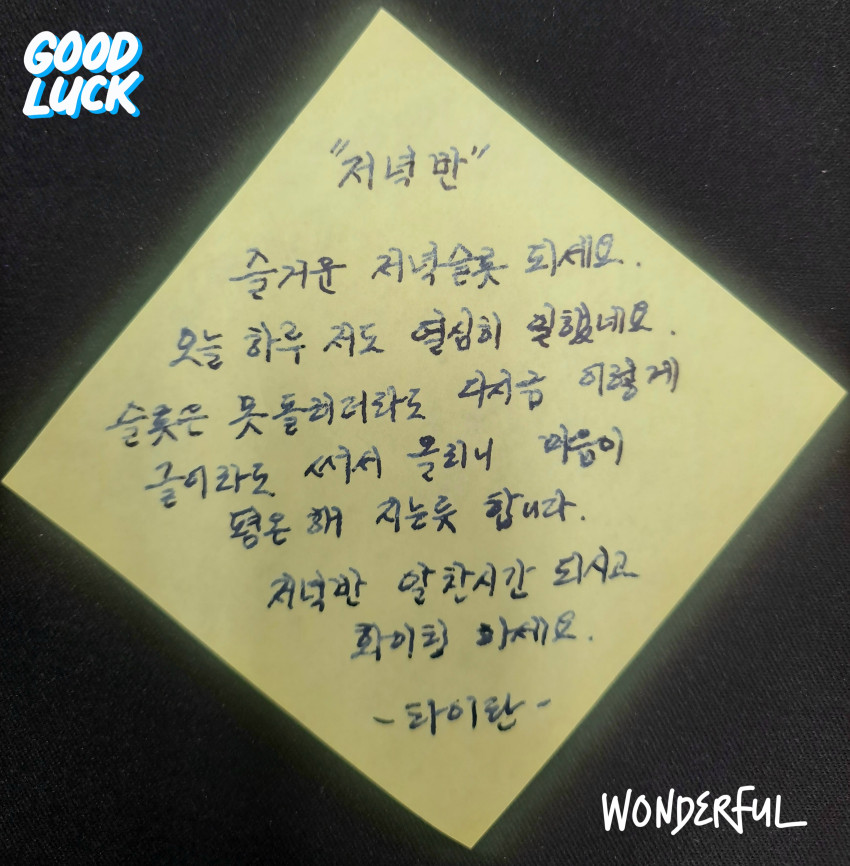 GOOD
LUCK
"저녁반"
즐거운 저녁슬롯 되세요.
오늘 하루 저도 열심히 일했네요.
슬롯은 못돌리더라도 다시금 이렇게
글이라도 써서 올리니 마음이
평온해 지는듯 합니다.
저녁반 알찬시간 되시고
화이팅 하세요.
-타이탄-
WONDERFUL